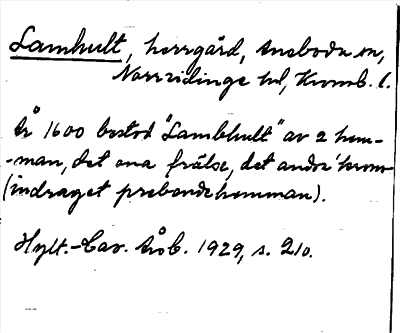 Lamhult, herrgård, Aneboda sn,
Norrvidinge hd, Kronob. l.
År 1600 bestod "Lambhult" av 2 hem-
-man, det ena frälse, det andra krono
(indraget prebendehemman).
Hylt.-Cav. Årsb. 1929, s. 210.